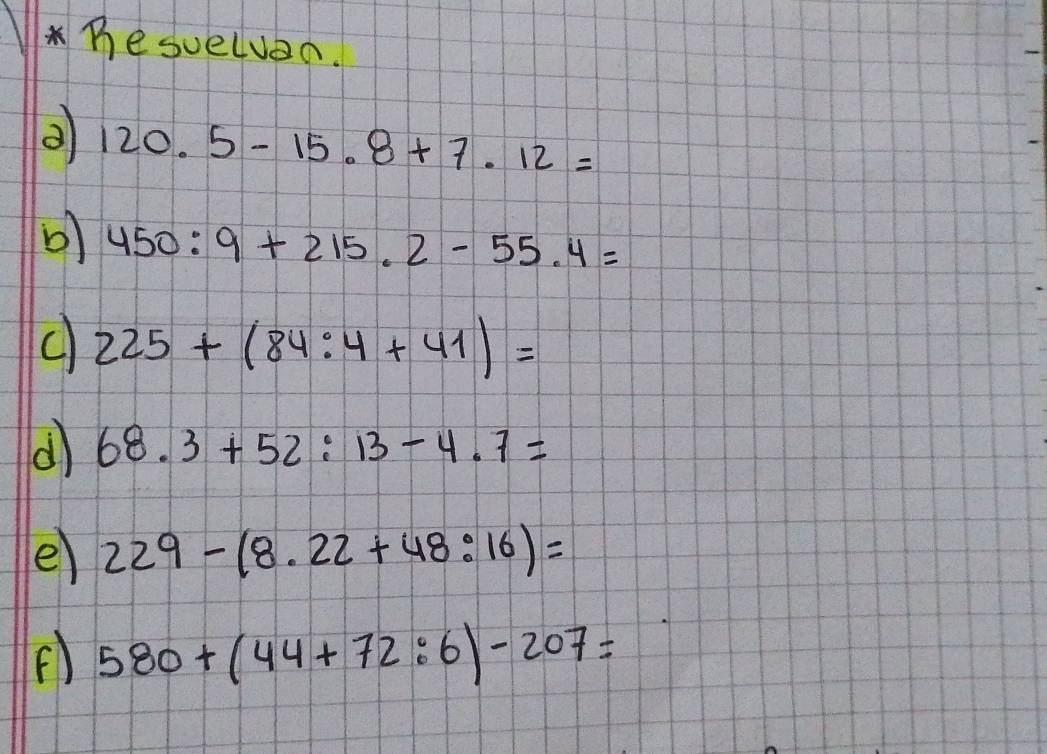 * Resuelvan.
a) 120. 5 - 15. 8 + 7. 12 =
b) 450 : 9 + 215. 2 - 55. 4 =
c) 225 + (84 : 4 + 41) =
d) 68. 3 + 52 : 13 - 4. 7 =
e) 229 - (8. 22 + 48 : 16) =
f) 580 + (44 + 72 : 6) - 207 =